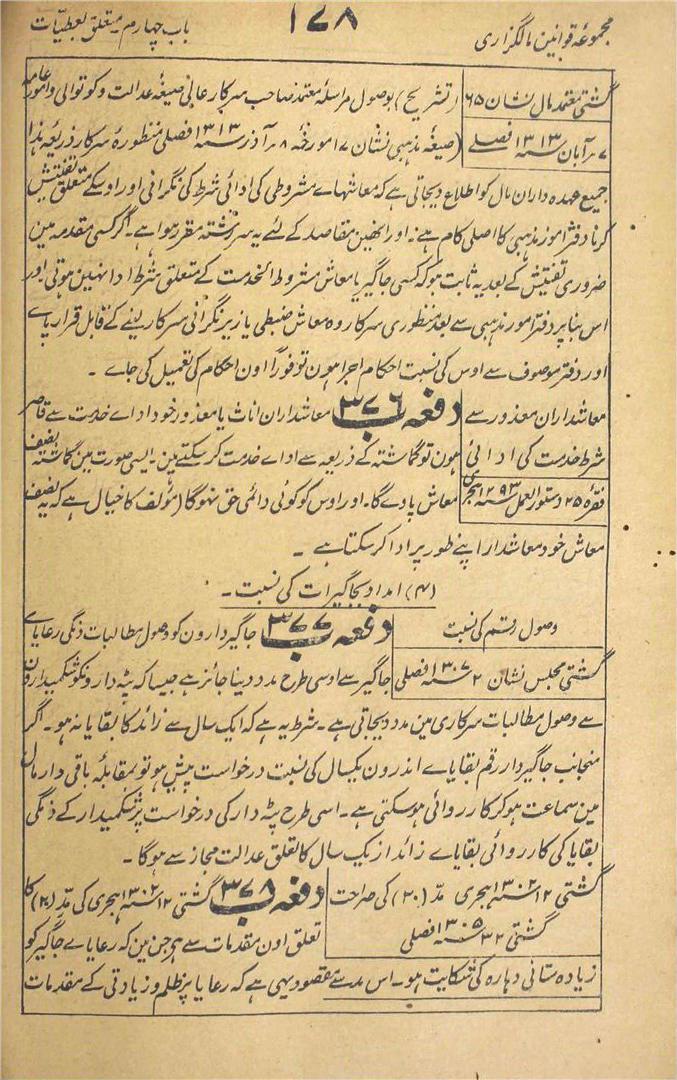 مجموعہ قوانین مالگزاری
۱۷۸
باب چہارم متعلق بعطیّات
گشتی معتمد مال نشان ۶۵
(تشریح) بوصول مراسلۂ معتمد صاحب سرکار عالی صیغۂ عدالت و کوتوالی و امور عامہ
۷ آبان ۱۳۱۳؁ فصلی
(صیغہ مذہبی نشان ۱۷ مورخہ ۸ آذر ۱۳۱۳؁ فصلی منظورۂ سرکار ذریعہ ہذا
جمیع عہدہ داران مال کو اطلاع دیجاتی ہے کہ معاشہاے مشروطی کی ادائی شرط کی نگرانی اور اوسکے متعلق تفتیش
کرنا دفتر امور مذہبی کا اصلی کام ہے۔ اور انھین مقاصد کے لئے یہ سررشتہ مقرر ہوا ہے۔ اگر کسی مقدمہ مین
ضروری تفتیش کے بعد یہ ثابت ہو کہ کسی جاگیر یا معاش مشروط الخدمت کے متعلق شرط ادا نہین ہوتی اور
اس بنا پر دفتر امور مذہبی سے بعد منظوری سرکار وہ معاش ضبطی یا زیر نگرانی سرکار لینے کے قابل قرار پاے
اور دفتر موصوف سے اوس کی نسبت احکام اجرا ہون تو فوراً اون احکام کی تعمیل کی جاے۔
معاشداران معذور سے
دفعہ ۳۷۶ ب معاشداران اناث یا معذور خود اداے خدمت سے قاصر
شرط خدمت کی ادائی
ہون تو گماشتہ کے ذریعہ سے اداے خدمت کرسکتے ہین۔ ایسی صورت مین گماشتہ بضیف
فقرہ ۲۵ دستور العمل ۱۲۹۳؁ ہجری
معاش پاوے گا۔ اور اوس کو کوئی دائمی حق نہوگا (مؤلف کا خیال ہے کہ یہ نصف
معاش خود معاشدار اپنے طور پر ادا کر سکتا ہے۔
(۴) امداد بجاگیرات کی نسبت۔
وصول رقم کی نسبت
دفعہ ۳۷۷ ب جاگیردارون کو وصول مطالبات ذمگی رعایاے
گشتی مجلس نشان ۲ ۱۳۰۷؁ فصلی
جاگیر سے اوسی طرح مدد دینا جائز ہے جیسا کہ پٹہ دارونکو شکمیدارون
سے وصول مطالبات سرکاری مین مدد دیجاتی ہے۔ شرط یہ ہے کہ ایک سال سے زائد کا بقایا نہ ہو۔ اگر
منجانب جاگیردار رقم بقایاے اندرون یکسال کی نسبت درخواست پیش ہو تو بمقابلۂ باقی دار مال
مین سماعت ہو کر کارروائی ہوسکتی ہے۔ اسی طرح پٹہ دار کی درخواست پر شکمیدار کے ذمگی
بقایا کی کارروائی بقایاے زائد از یک سال کا تعلق عدالت مجاز سے ہوگا۔
گشتی ۱۲ ۱۳۰۲؁ ہجری مدّ (۲۰) کی صراحت
دفعہ ۳۷۸ ب گشتی ۱۲ ۱۳۰۲؁ ہجری کی مدّ (۲۰) کا
گشتی ۳۲ ۱۳۰۵؁ فصلی
تعلق اون مقدمات سے ہے جن مین کہ رعایاے جاگیر کو
زیادہ ستانی دہارہ کی شکایت ہو۔ اس مد سے مقصود یہی ہے کہ رعایا پر ظلم و زیادتی کے مقدمات